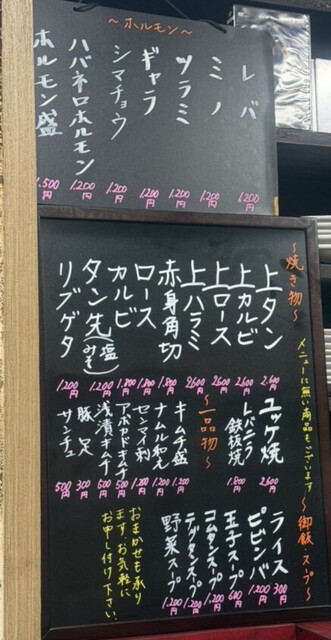 ～ホルモン～
レバ 1.200円
ミノ 1.200円
ツラミ 1.200円
ギャラ 1.200円
シマチョウ 1.200円
ハバネロホルモン 1.200円
ホルモン盛 1.500円
メニューに無い商品もございます
～焼き物～
上タン 2.600円
上カルビ 2.600円
上ロース 2.600円
上ハラミ 2600円
赤身角切 1.800円
ロース 1.800円
カルビ 1.800円
タン先(塩みそ) 1.200円
リブゲタ 1.200円
ユッケ焼 2.600円
レバニラ鉄板焼 1.800円
～一品物～
キムチ盛 1.200円
ナムル和え 1.200円
センマイ刺 1.200円
アボカドキムチ 500円
浅漬キムチ 600円
豚足 300円
サンチュ 500円
～御飯・スープ～
ライス 300円
ビビンバ 1.200円
玉子スープ 600円
コムタンスープ 1.200円
テグタンスープ 1.200円
野菜スープ 1.200円
おまかせも承り
ます。お気軽に
お申し付け下さい。